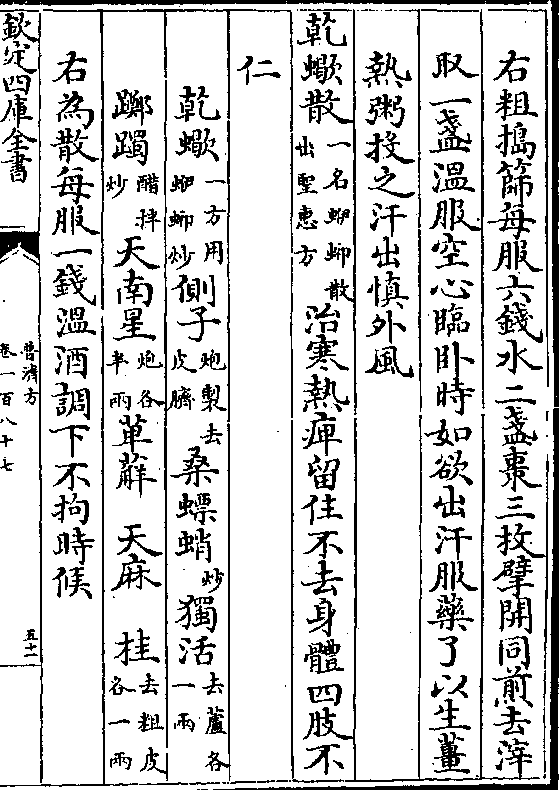 右粗搗篩每服六錢水二盞棗三枚擘開同煎去滓
取一盞溫服空心臨卧時如欲出汗服藥了以生薑
熱粥投之汗出慎外風
乾蠍散一名蝍𧊿散出聖惠方治寒熱痺留住不去身體四肢不
仁
乾蠍一方用蝍𧊿炒側子炮製去皮臍桑螵蛸炒獨活去蘆各一兩
躑躅醋拌炒天南星炮各半兩萆薢 天麻 桂去粗皮各一兩
右為散每服一錢溫酒調下不拘時候
欽定四庫全書
普濟方
卷一百八十七
五十一